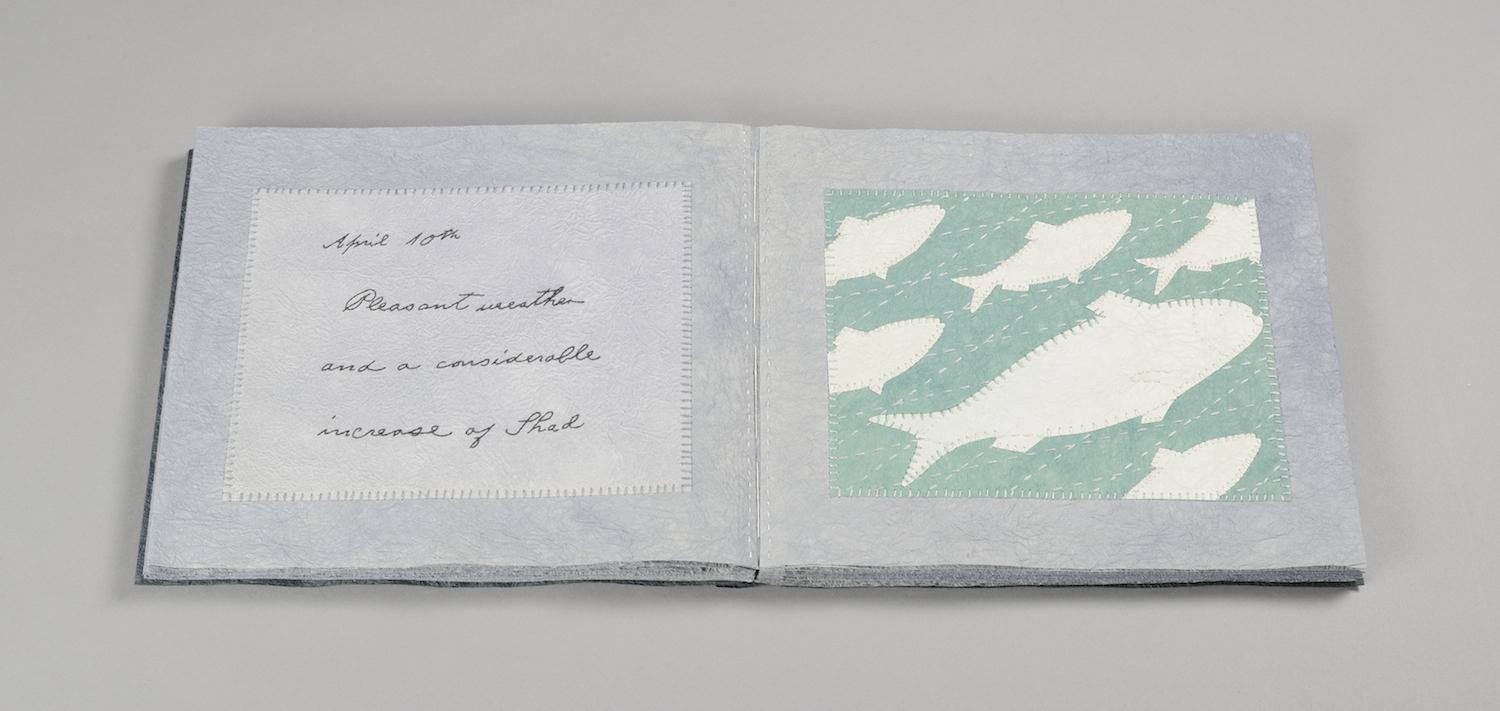 April 10th
Pleasant weather
and a considerable
increase of Shad